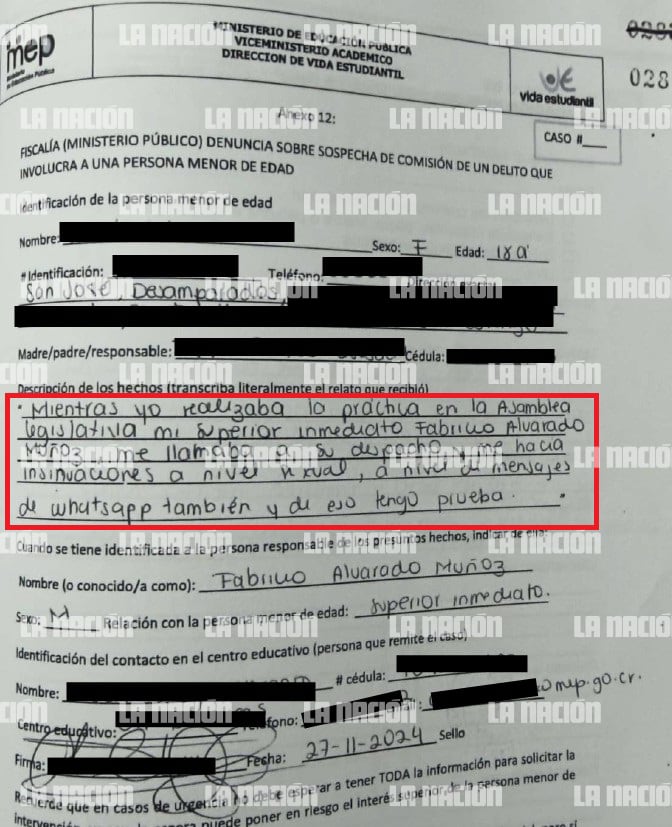 mep
Ministerio
de Educación Pública
MINISTERIO DE EDUCACIÓN PÚBLICA
VICEMINISTERIO ACADEMICO
DIRECCION DE VIDA ESTUDIANTIL
vida estudiantil
028
Anexo 12:
CASO #
FISCALÍA (MINISTERIO PÚBLICO) DENUNCIA SOBRE SOSPECHA DE COMISIÓN DE UN DELITO QUE
INVOLUCRA A UNA PERSONA MENOR DE EDAD
Identificación de la persona menor de edad
Nombre: Sexo: F Edad: 18a
# Identificación: Teléfono:
San José, Desamparados,
Madre/padre/responsable: Cédula:
Descripción de los hechos (transcriba literalmente el relato que recibió)
"Mientras yo realizaba la práctica en la Asamblea
legislativa mi superior inmediato Fabricio Alvarado
Muñoz me llamaba a su despacho y me hacia
insinuaciones a nivel sexual, a nivel de mensajes
de whatsapp también y de eso tengo prueba. "
Cuando se tiene identificada a la persona responsable de los presuntos hechos, indicar de ella:
Nombre (o conocido/a como): Fabricio Alvarado Muñoz
Sexo: M Relación con la persona menor de edad: superior inmediato.
Identificación del contacto en el centro educativo (persona que remite el caso)
Nombre: # cédula:
mep.go.cr.
Centro educativo:
Firma: Fecha: 27-11-2024 Sello
Recuerde que en casos de urgencia no debe esperar a tener TODA la información para solicitar la
puede poner en riesgo el interés superior de la persona menor de
LA NACIÓN